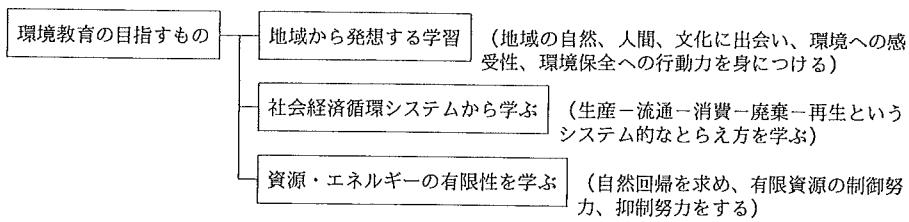 環境教育の目指すもの
地域から発想する学習
(地域の自然、人間、文化に出会い、環境への感
受性、環境保全への行動力を身につける)
社会経済循環システムから学ぶ
(生産－流通－消費－廃棄－再生という
システム的なとらえ方を学ぶ)
資源・エネルギーの有限性を学ぶ
(自然回帰を求め、有限資源の制御努
力、抑制努力をする)